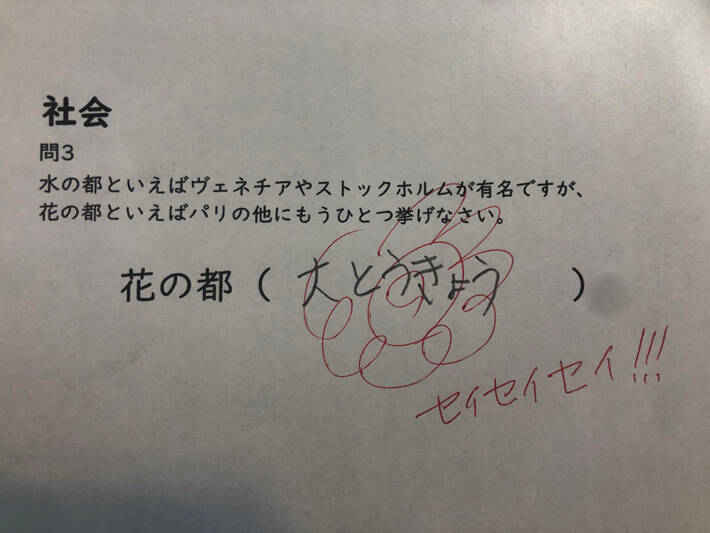 社会
問3
水の都といえばヴェネチアやストックホルムが有名ですが、
花の都といえばパリの他にもうひとつ挙げなさい。
花の都（大とうきょう）
セイセイセイ!!!